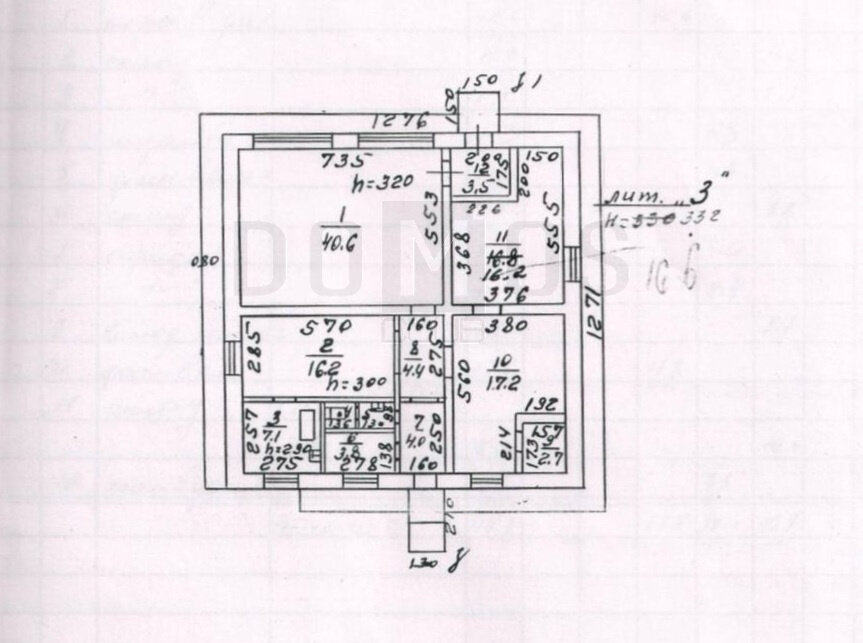 150 у 1
150
1276
735
h=320
1
40.6
553
2,00
12
3,5
175
200
150
226
11
16.8
16.2
368
555
376
лит. „З"
H=330 332
16.6
080
1271
DOMOS
570
2
16.2
h=300
285
160
8
4.4
275
380
10
17.2
560
192
214
157
9
2.7
173
3
7.1
h=290
257
275
4
136
5
6
3.8
138
278
7
4.0
250
160
210
130 у